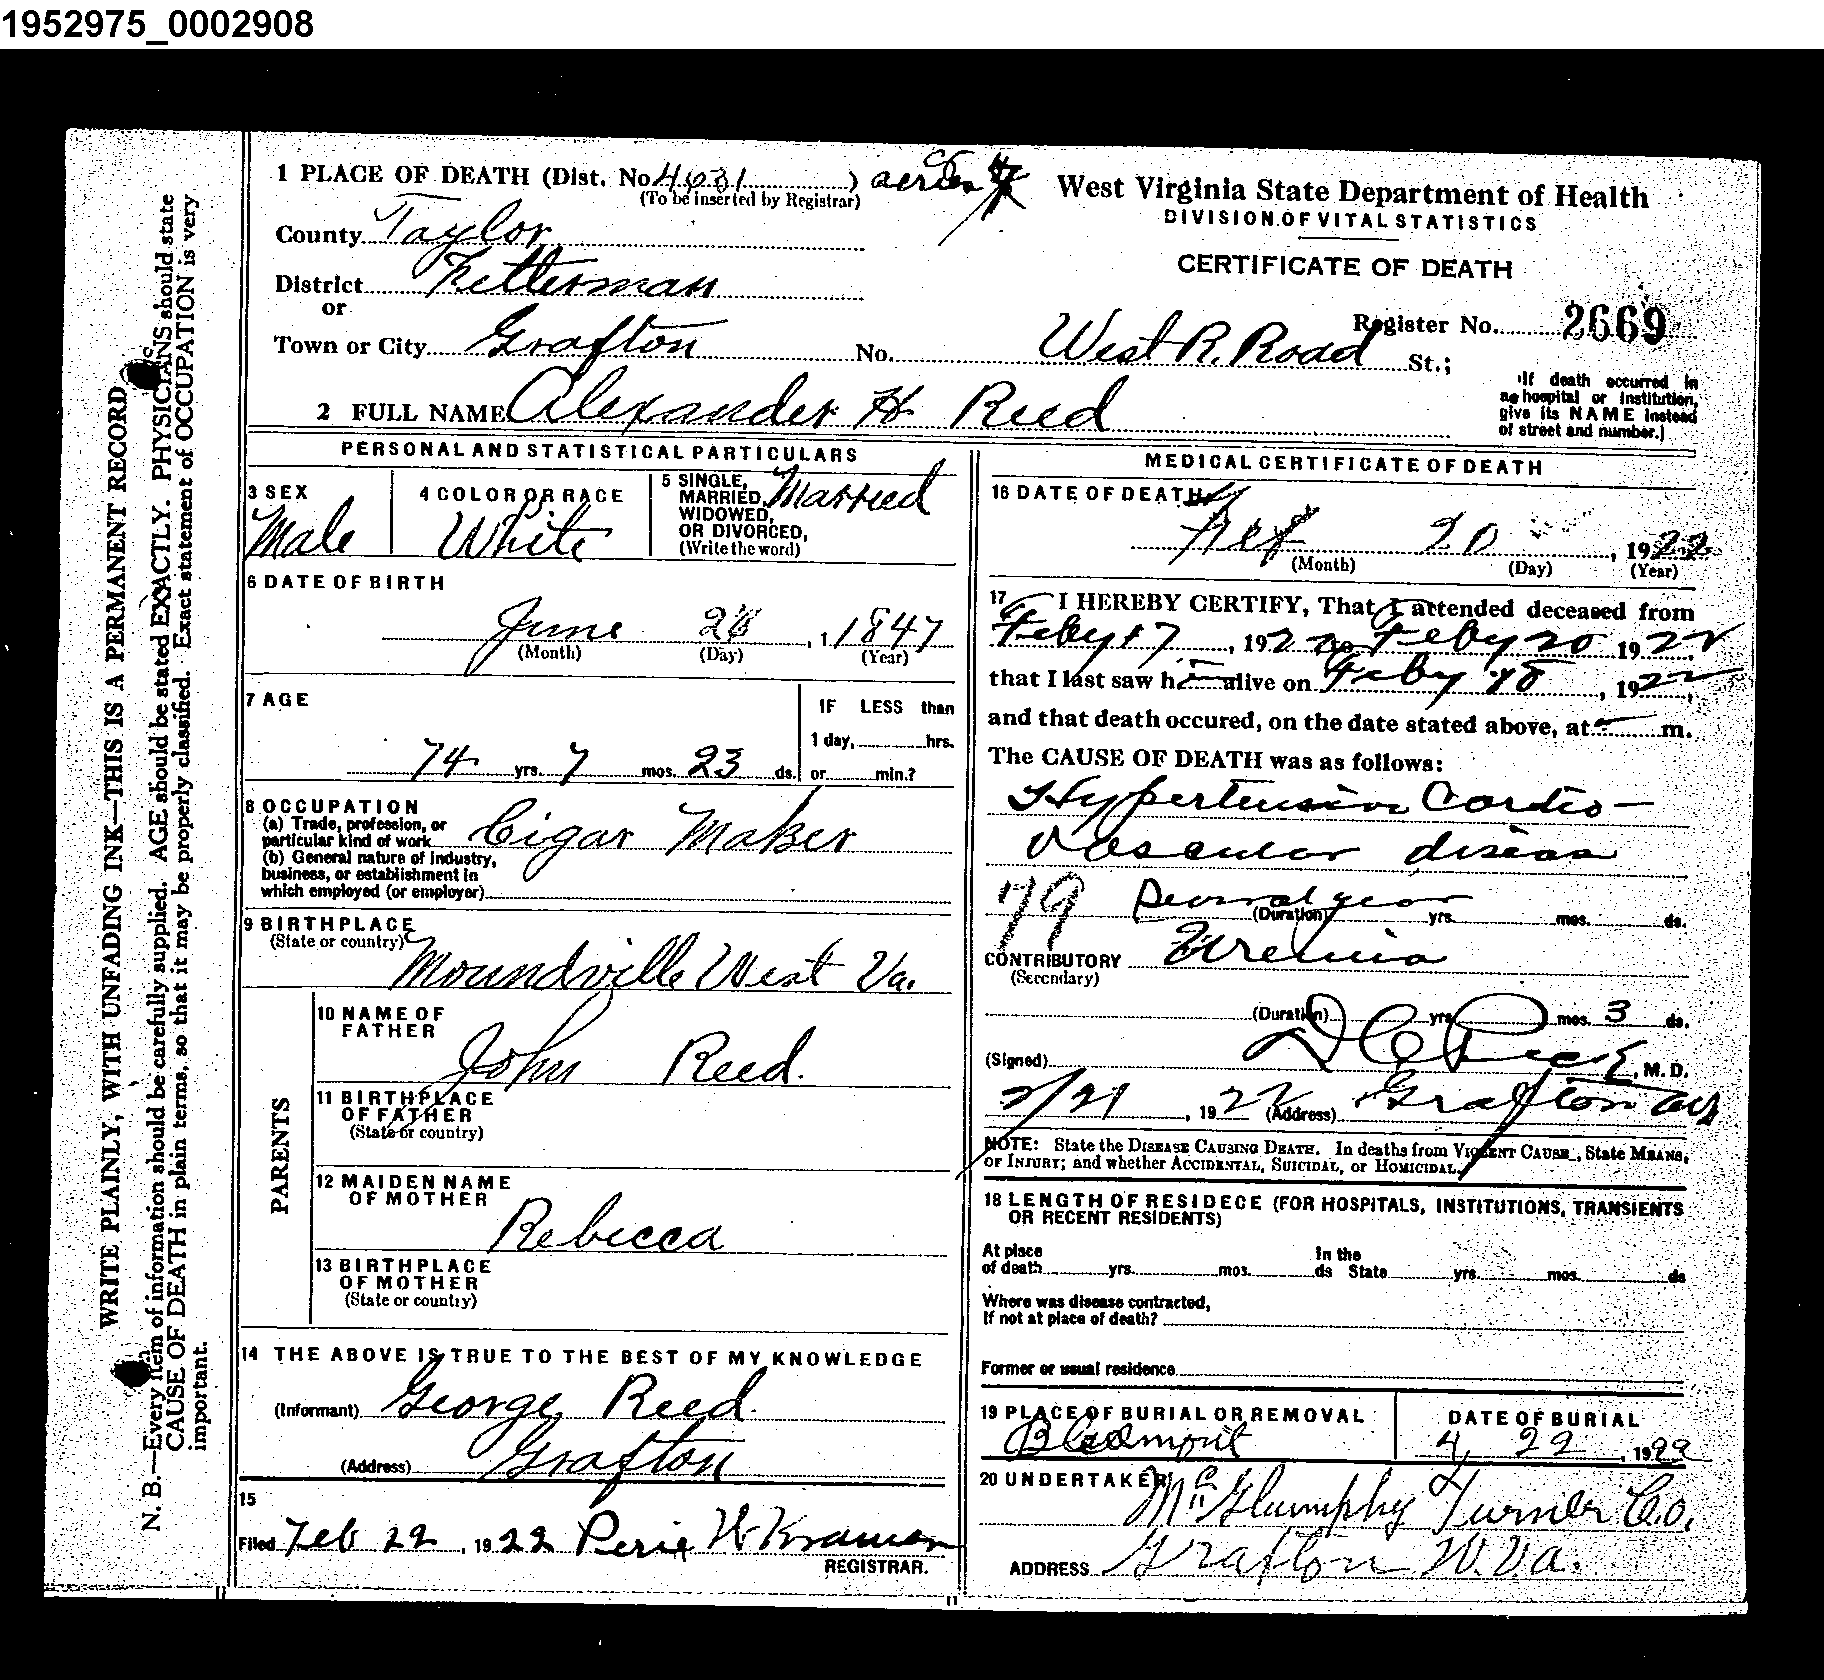 1952975_0002908
1 PLACE OF DEATH (Dist. No. 4631 )
(To be inserted by Registrar)
County Taylor
District Fetterman
or
Town or City Grafton No. West R. Road St.;
2 FULL NAME Alexander H Reed
West Virginia State Department of Health
DIVISION OF VITAL STATISTICS
CERTIFICATE OF DEATH
Register No. 2669
If death occurred in
a hospital or institution,
give its NAME instead
of street and number.)
WRITE PLAINLY, WITH UNFADING INK—THIS IS A PERMANENT RECORD
N. B.—Every item of information should be carefully supplied. AGE should be stated EXACTLY. PHYSICIANS should state
CAUSE OF DEATH in plain terms, so that it may be properly classified. Exact statement of OCCUPATION is very
important.
PERSONAL AND STATISTICAL PARTICULARS
3 SEX
Male
4 COLOR OR RACE
White
5 SINGLE,
MARRIED,
WIDOWED,
OR DIVORCED,
(Write the word)
Married
6 DATE OF BIRTH
June 28, 1 1847
(Month) (Day) (Year)
7 AGE
74 yrs. 7 mos. 23 ds.
IF LESS than
1 day, hrs.
or min.?
8 OCCUPATION
(a) Trade, profession, or
particular kind of work Cigar Maker
(b) General nature of industry,
business, or establishment in
which employed (or employer)
9 BIRTHPLACE
(State or country)
Moundville West Va.
PARENTS
10 NAME OF
FATHER
John Reed.
11 BIRTHPLACE
OF FATHER
(State or country)
12 MAIDEN NAME
OF MOTHER
Rebecca
13 BIRTHPLACE
OF MOTHER
(State or country)
14 THE ABOVE IS TRUE TO THE BEST OF MY KNOWLEDGE
(Informant) George Reed.
(Address) Grafton
15
Filed Feb 22, 1922
REGISTRAR.
MEDICAL CERTIFICATE OF DEATH
16 DATE OF DEATH
20, 1922
(Month) (Day) (Year)
17 I HEREBY CERTIFY, That I attended deceased from
Feby 17, 1922 to Feby 20 1922
that I last saw h alive on Feby 18, 1922,
and that death occured, on the date stated above, at m.
The CAUSE OF DEATH was as follows:
Hypertensive Cardio-
vascular disease
79 Several years
(Duration) yrs. mos. ds.
CONTRIBUTORY Uremia
(Secondary)
(Duration) yrs. mos. 3 ds.
(Signed) D C Peck, M. D.
2/21, 1922 (Address) Grafton
NOTE: State the DISEASE CAUSING DEATH. In deaths from VIOLENT CAUSE, State MEANS,
OR INJURY; and whether ACCIDENTAL, SUICIDAL, or HOMICIDAL.
18 LENGTH OF RESIDECE (FOR HOSPITALS, INSTITUTIONS, TRANSIENTS
OR RECENT RESIDENTS)
At place In the
of death yrs. mos. ds State yrs. mos. ds
Where was disease contracted,
If not at place of death?
Former or usual residence
19 PLACE OF BURIAL OR REMOVAL
DATE OF BURIAL
22, 1922
20 UNDERTAKER
McGlumphy Turner Co.
ADDRESS Grafton W.Va.